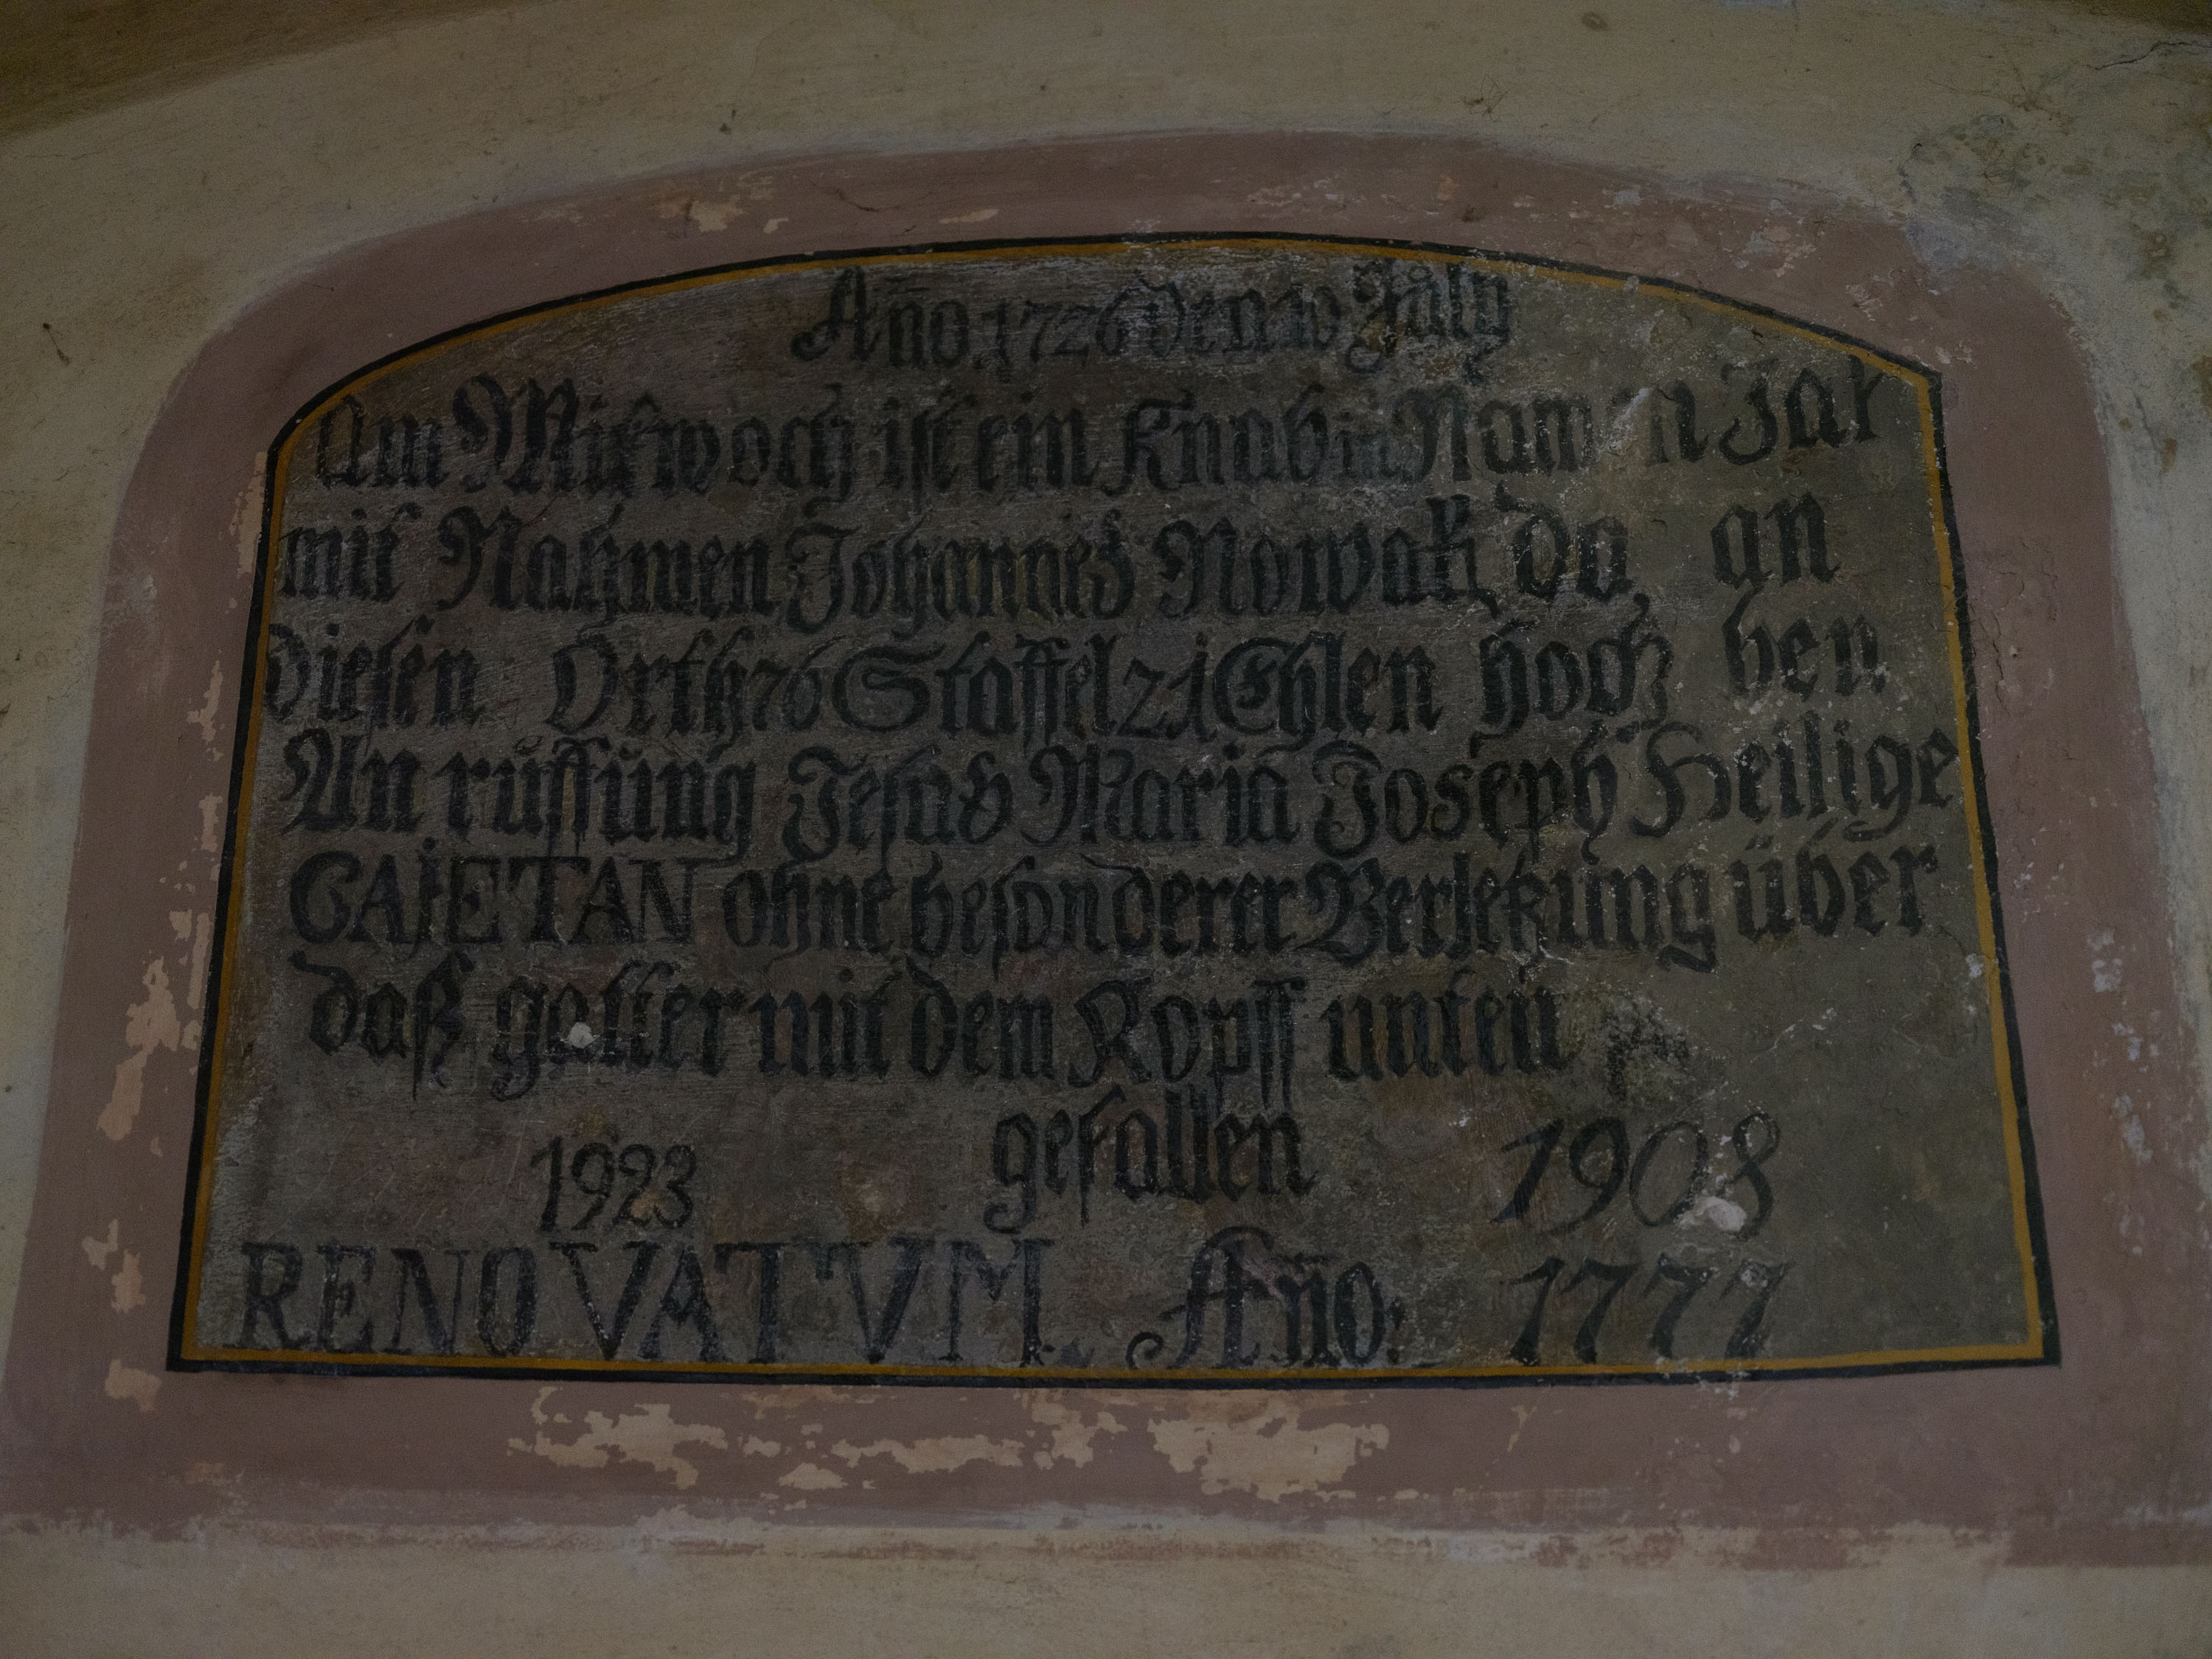 Año. 1726 den 10 Júlÿ
Am Mitwoch ist ein Knab im Jar
mit Nahmen Johannes Nowak, da, an
diesen Orth 76 Staffel 21 Ehlen hoch beÿ
An rúffúng Jesus Maria Joseph Heilige
CAIETAN ohne besonderer Verletzúng über
daß gatter mit dem Kopff unten
gefallen
1923 1908
RENOVATVM. Año: 1777